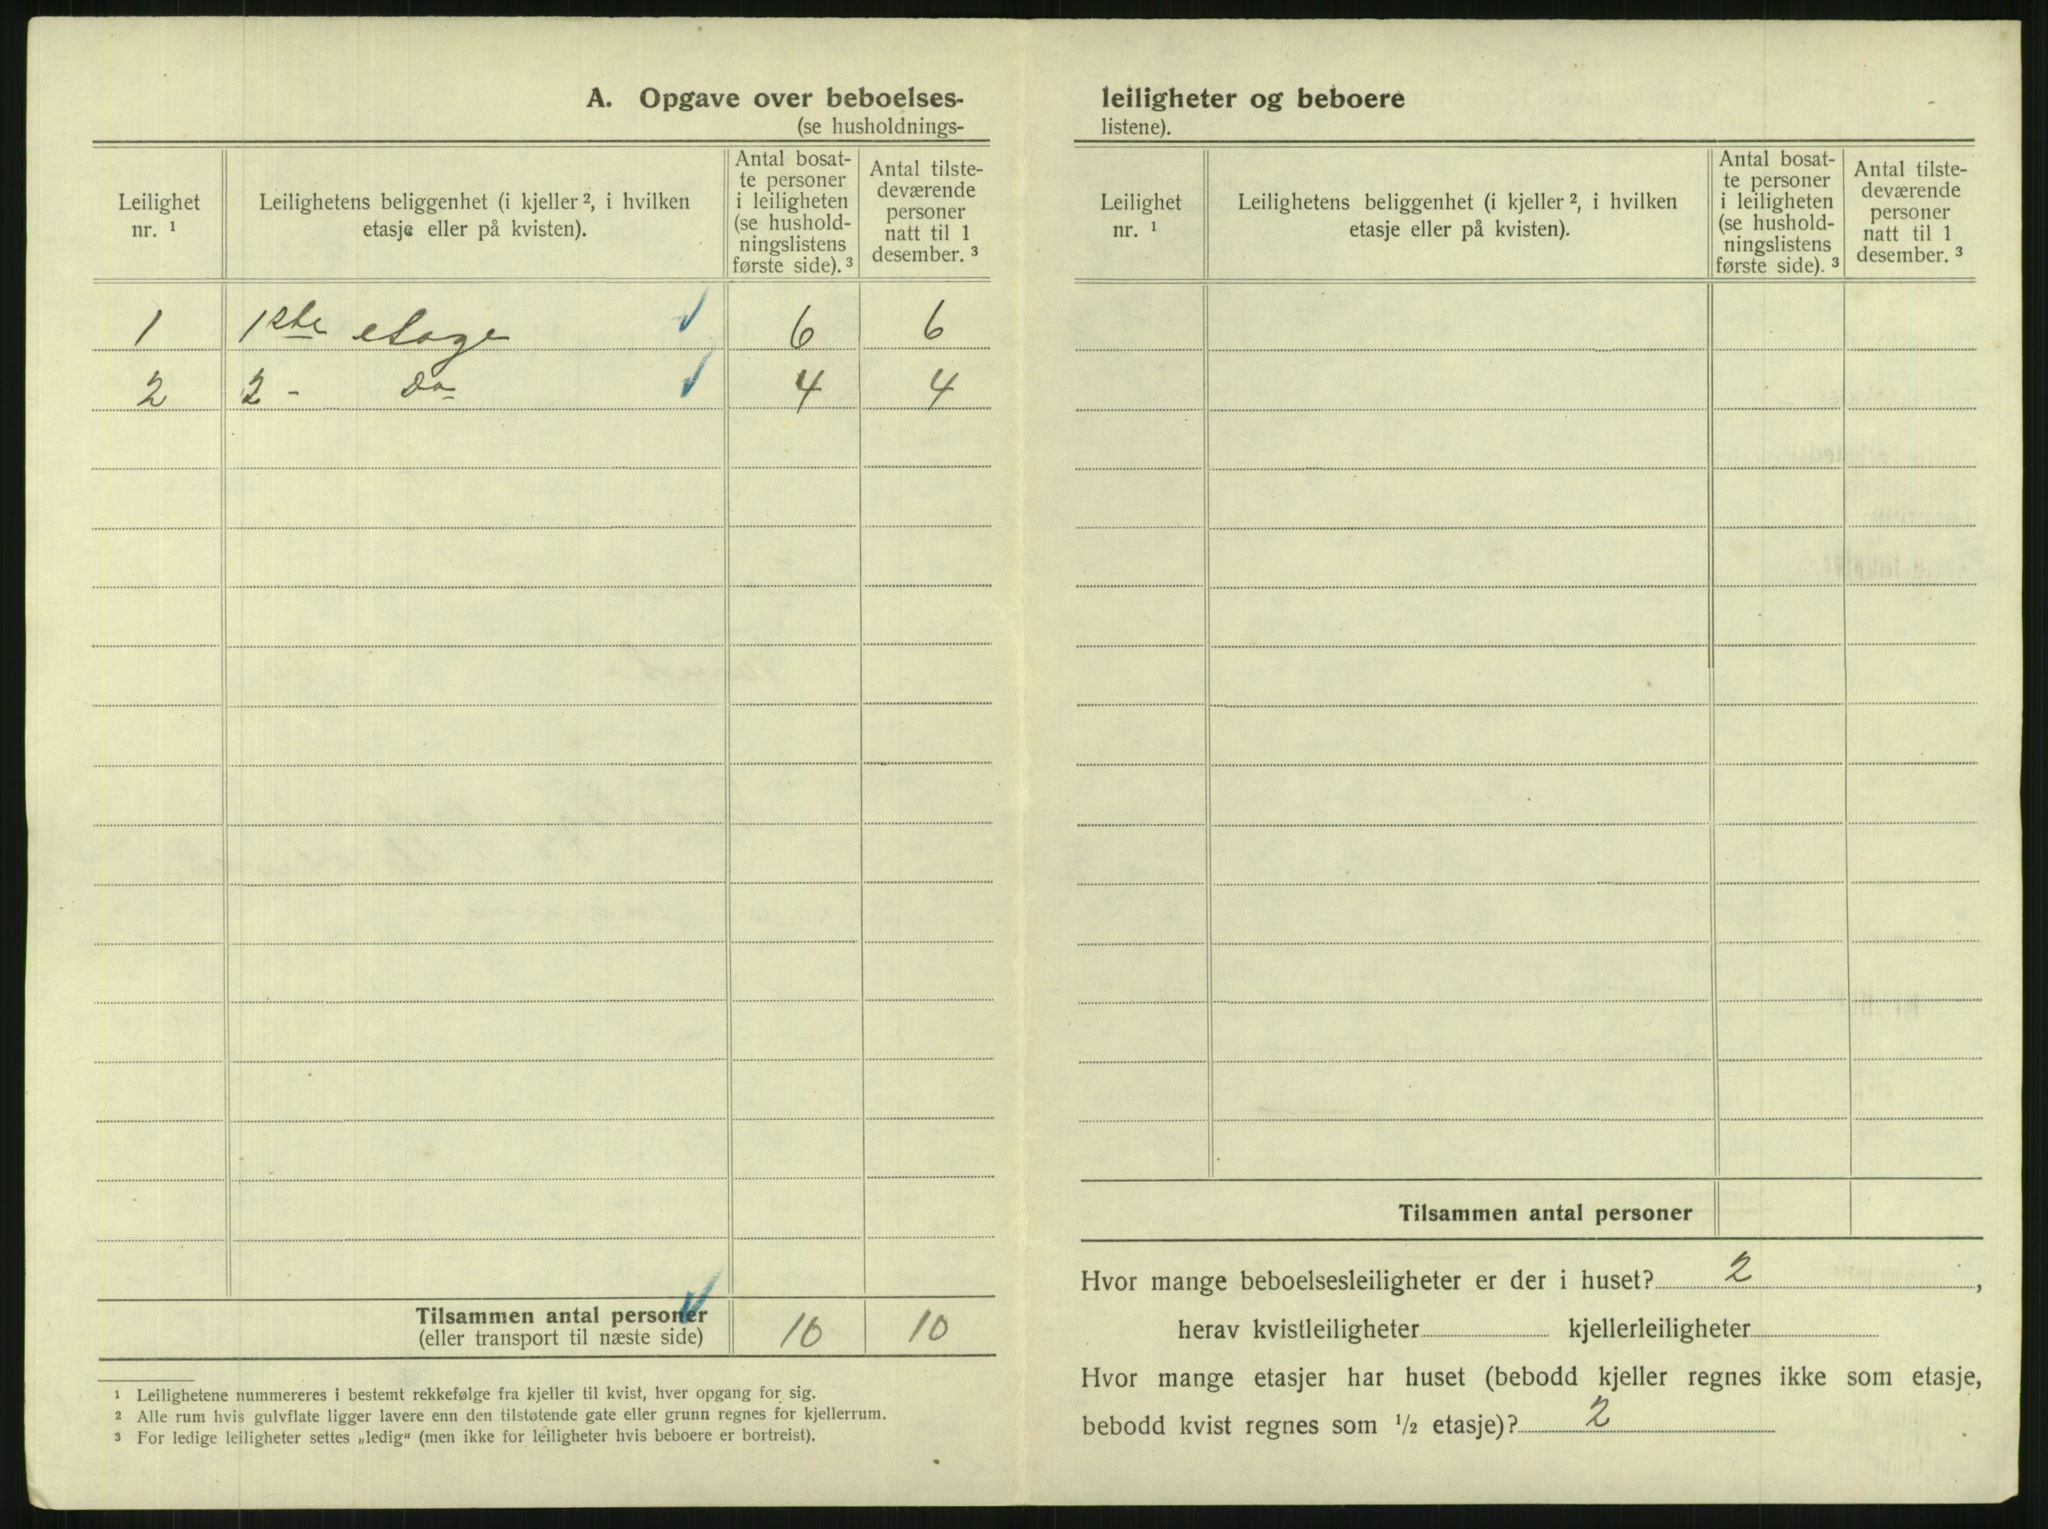 A. Opgave over beboelses-
(se husholdnings-
Leilighet nr. ¹
Leilighetens beliggenhet (i kjeller ², i hvilken etasje eller på kvisten).
Antal bosat-
te personer
i leiligheten
(se hushold-
ningslistens
første side). ³
Antal tilste-
deværende
personer
natt til 1
desember. ³
1 1ste etage 6 6
2 2 - Do 4 4
Tilsammen antal personer 10 10
(eller transport til næste side)
¹ Leilighetene nummereres i bestemt rekkefølge fra kjeller til kvist, hver opgang for sig.
² Alle rum hvis gulvflate ligger lavere enn den tilstøtende gate eller grunn regnes for kjellerrum.
³ For ledige leiligheter settes „ledig“ (men ikke for leiligheter hvis beboere er bortreist).
leiligheter og beboere
listene).
Leilighet nr. ¹
Leilighetens beliggenhet (i kjeller ², i hvilken etasje eller på kvisten).
Antal bosat-
te personer
i leiligheten
(se hushold-
ningslistens
første side). ³
Antal tilste-
deværende
personer
natt til 1
desember. ³
Tilsammen antal personer
Hvor mange beboelsesleiligheter er der i huset? 2 ,
herav kvistleiligheter kjellerleiligheter
Hvor mange etasjer har huset (bebodd kjeller regnes ikke som etasje,
bebodd kvist regnes som ½ etasje)? 2